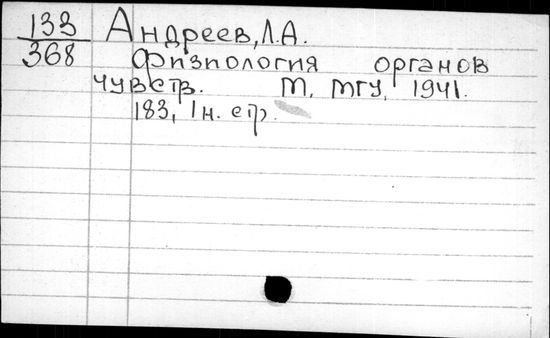 133 Андреев, Л.А.
368 Физиология органов
чувств. М, МГУ, 1941.
183, 1 н. стр.